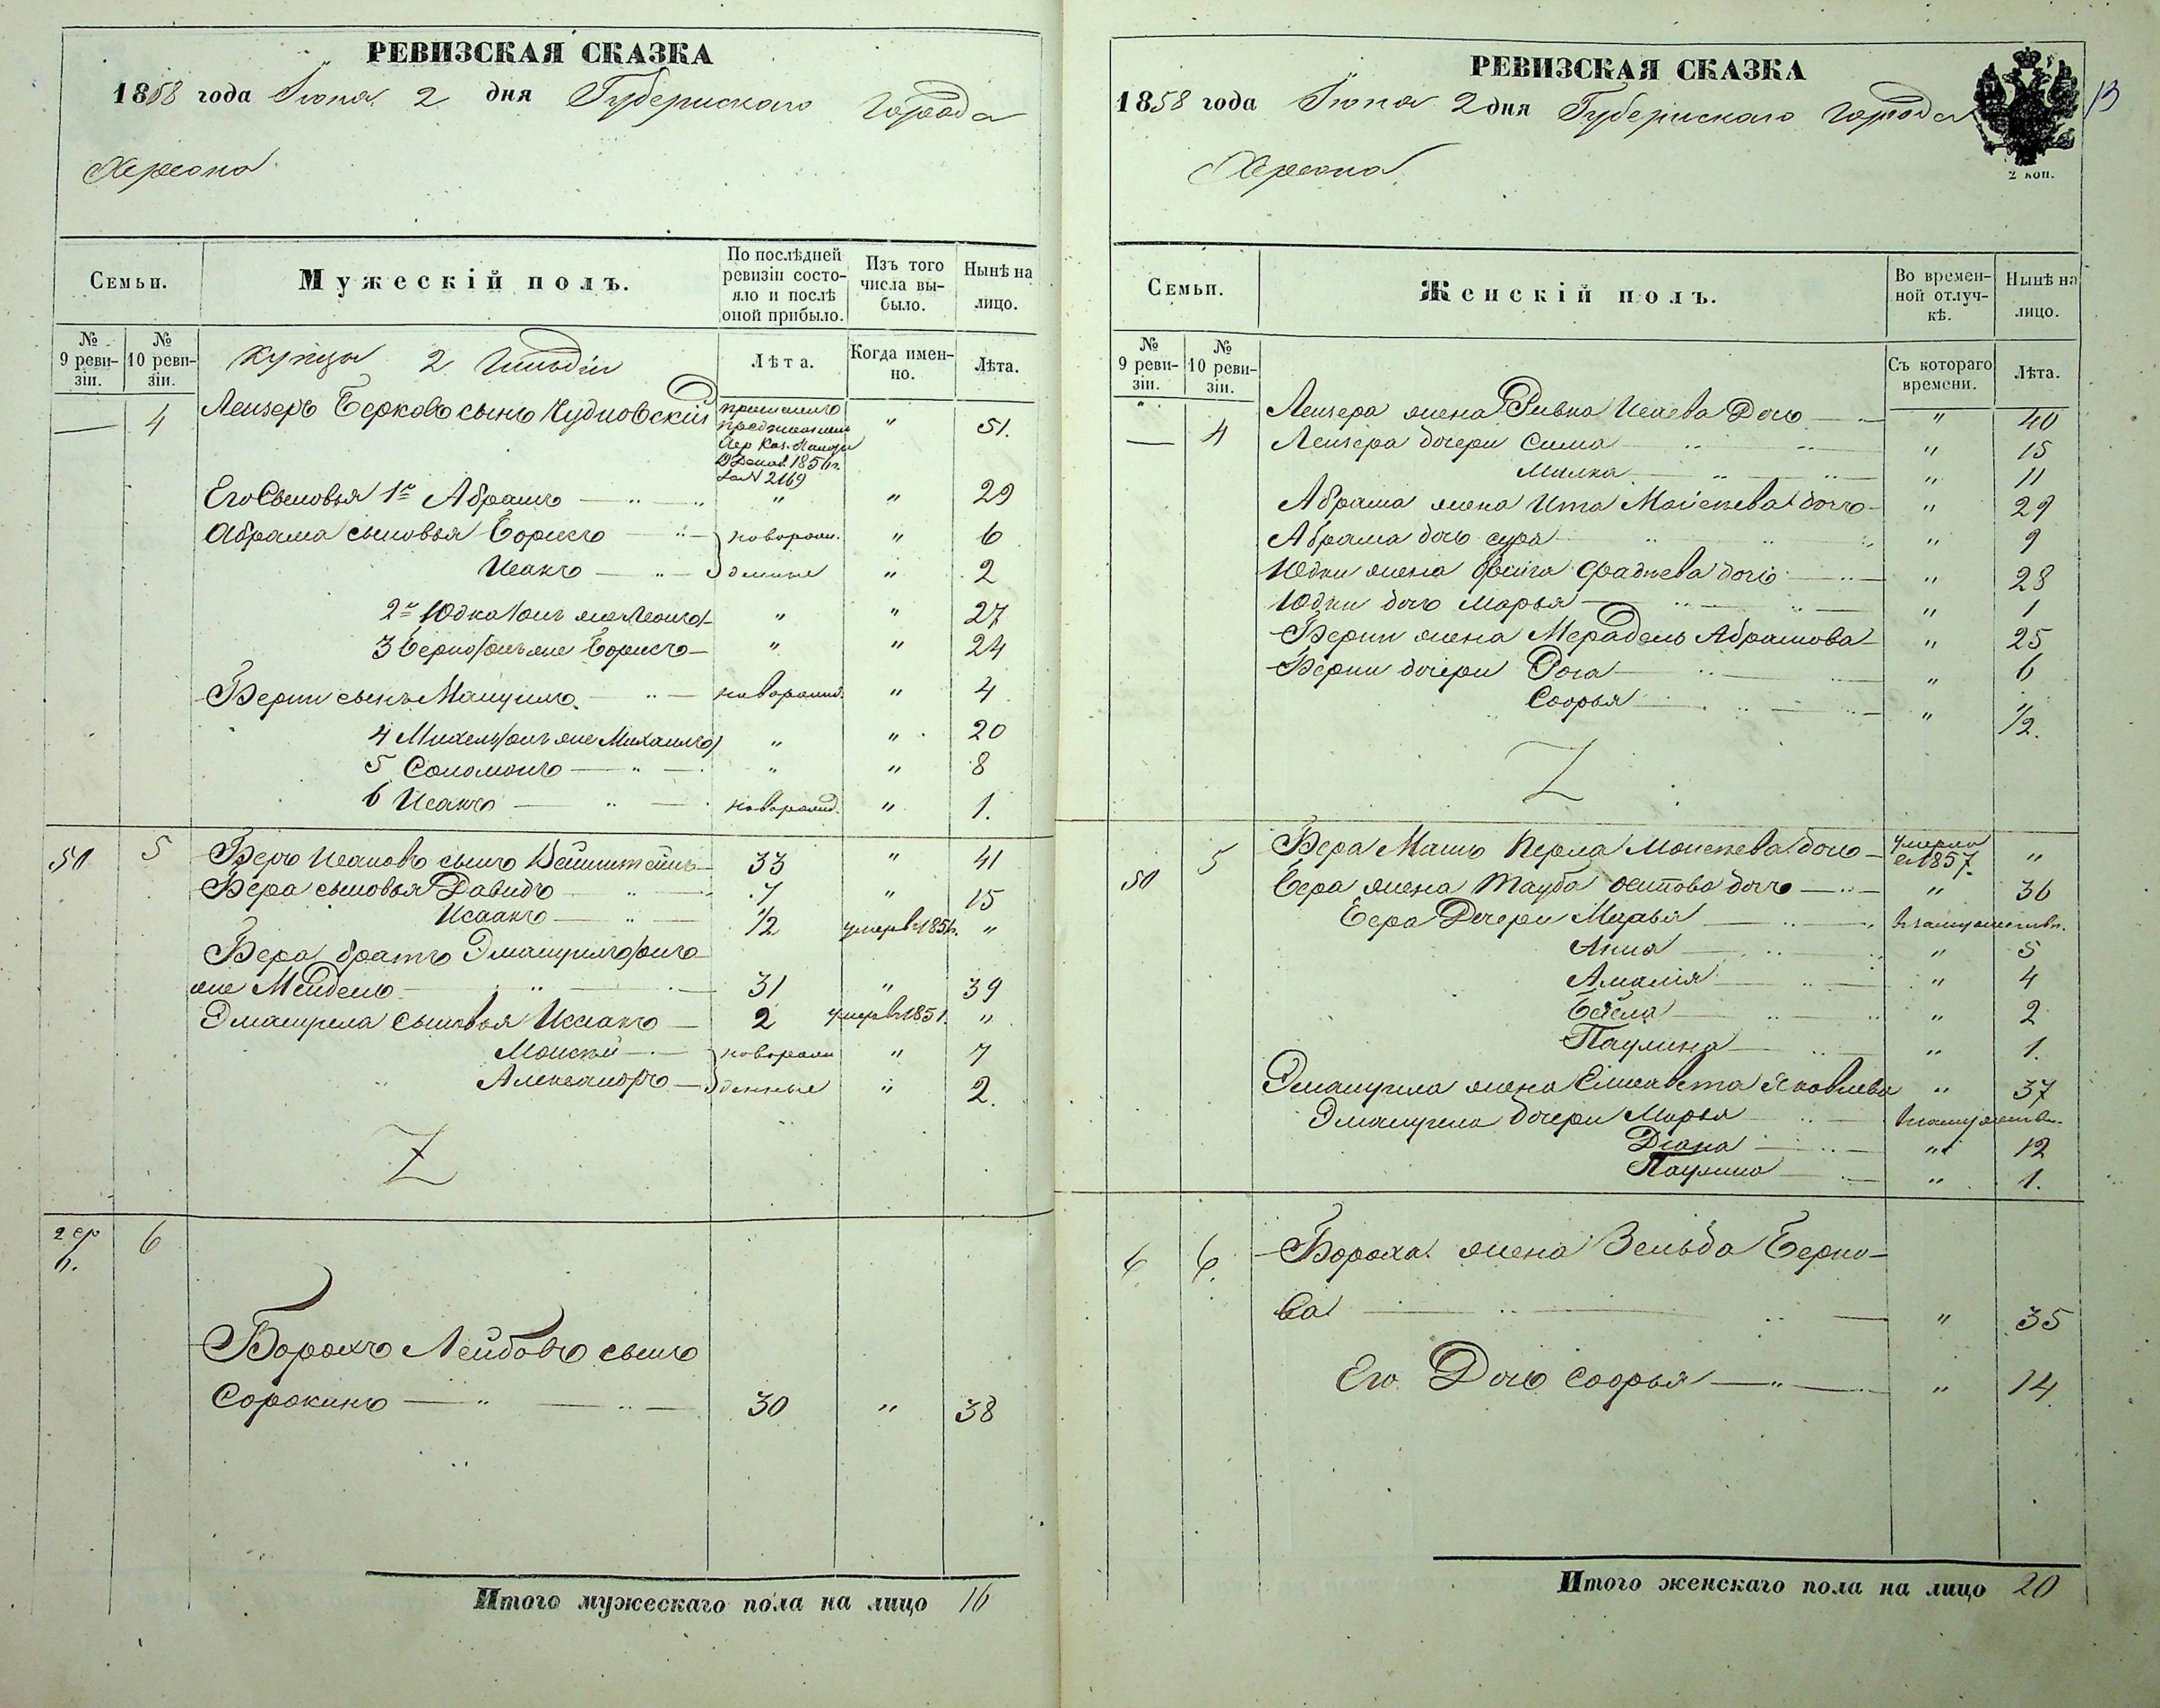 РЕВИЗСКАЯ СКАЗКА
1858 года Іюня 2 дня Губернскаго Города
Херсона
Семьи.
Мужескій полъ.
По послѣдней ревизіи состояло и послѣ оной прибыло.
Изъ того числа выбыло.
Нынѣ на лицо.
№ 9 ревизіи.
№ 10 ревизіи.
Купцы 2 Гильдіи
Лѣта.
Когда именно.
Лѣта.
— 4 Лейзеръ Берковъ сынъ Чудновскій " 51.
Хер. Каз. Палаты
Декаб. 1856 г.
за № 2169
Его Сыновья 1й Абрамъ " " 29
Абрама сыновья Борисъ новорож- " 6
Исакъ денные " 2
2й Юдка/онъ же Леонъ/ " " 27
3 Берко/онъ же Борисъ " " 24
Берки сынъ Мануилъ новорожд. " 4
4 Михель/онъ же Михаилъ/ " " 20
5 Соломонъ " " 8
6 Исакъ новорожд. " 1.
50 5 Беръ Исаковъ сынъ Вейнштейнъ 33 " 41
Бера сыновья Давидъ 7 " 15
Исаакъ 1/2 умеръ в 1856. "
Бера братъ Эмануилъ/онъ
же Мендель 31 " 39
Эмануила сыновья Исаакъ 2 умеръ в 1851. "
Моисей новорож- " 7
Александръ денные " 2.
2 гр 6
6.
Борохъ Лейбовъ сынъ
Сорокинъ 30 " 38
Итого мужескаго пола на лицо 16
РЕВИЗСКАЯ СКАЗКА
1858 года Іюня 2 дня Губернскаго Города
13
Херсона
2 коп.
Семьи.
Женскій полъ.
Во временной отлучкѣ.
Нынѣ на лицо.
№ 9 ревизіи.
№ 10 ревизіи.
Съ котораго времени.
Лѣта.
— 4 Лейзера жена Ривка Исаева Дочь " 40
Лейзера дочери Сима " 15
Малка " 11
Абрама жена Ита Моисеева дочь " 29
Абрама дочь Сура " 9
Юдки жена дочь " 28
Юдки дочь Марья " 1
Берки жена Абрамова " 25
Берки дочери Роза " 6
Софья " 1/2.
50 5 Бера Мать Перла Моисеева дочь умерла в 1857. "
Бера жена Тауба Осипова дочь " 36
Бера Дочери Марья в замужестве.
Анна " 5
Амалія " 4
Бейла " 2
Паулина " 1.
Эмануила жена Елисавета Яковлева " 37
Эмануила дочери Марья в замужестве.
Діана " 12
Паулина " 1.
6 6. Бороха жена Зельда Берко-
ва " 35
Его Дочь Софья " 14
Итого женскаго пола на лицо 20